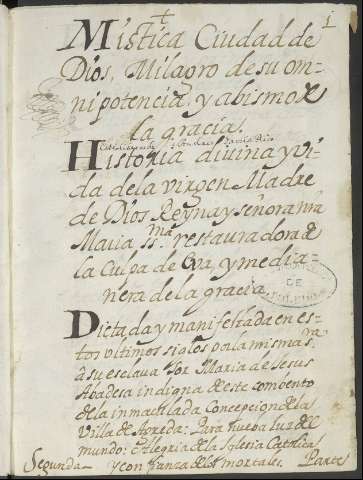 1
Mistica Ciudad de
Dios, Milagro de su om-
nipotencia, y abismo de
la gracia.
Historia diuina, y vi-
da de la virgen Madre
de Dios Reyna y señora nrã
Maria SSma. restauradora de
la Culpa de Eva, y media-
nera de la gracia.
Dictada y manifestada en es-
tos vltimos siglos por la misma sra.
a su esclaua Sor Maria de Jesus
Abadesa indigna de este combento
de la inmaculada Concepcion de la
Villa de Agreda: Para nueba luz del
mundo: Alegria de la Iglesia Catolica
y confianza de los mortales.
Segunda Parte
DE